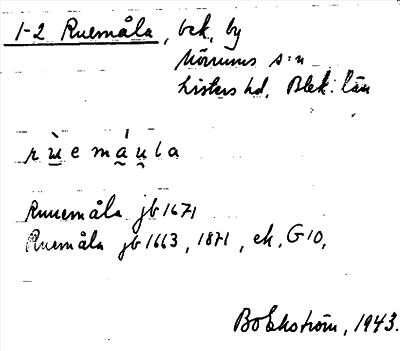 1-2 Ruemåla, bek. by
Mörrums s:n
Listers hd. Blek. län
r ù e m á u l a
Ruuemåla jb 1671
Ruemåla jb 1663, 1871, ek, G10,
Bo Ekström, 1943.